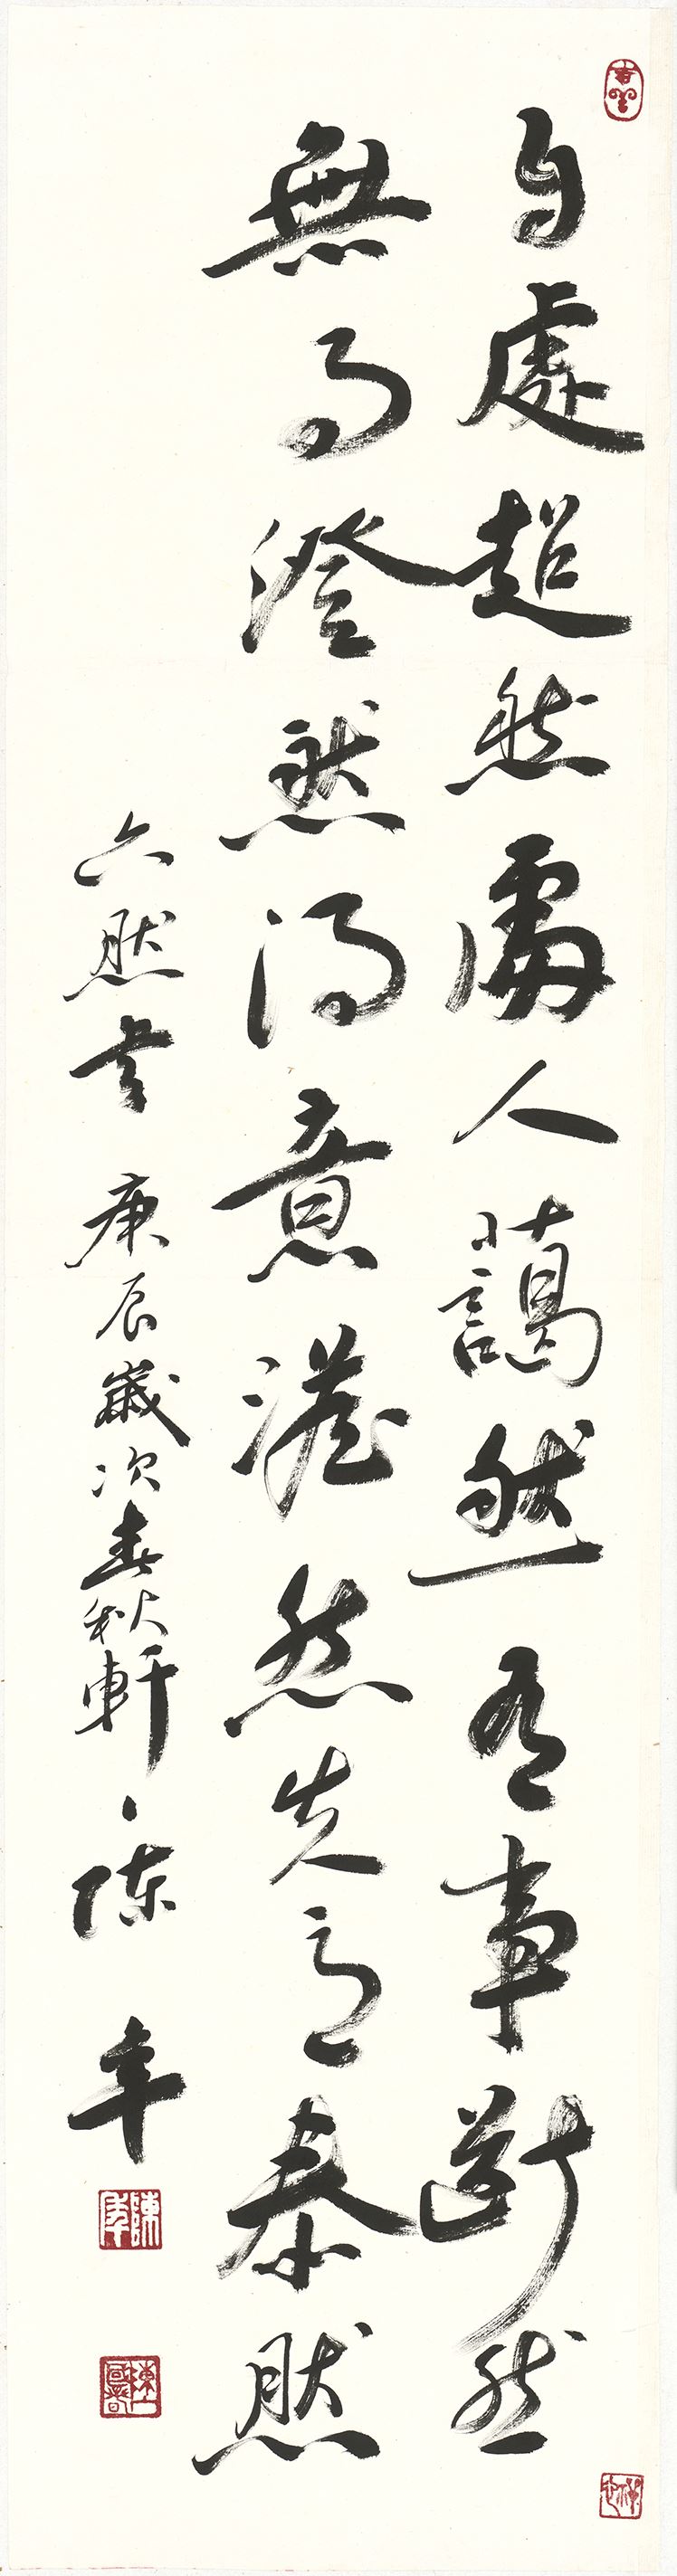 自處超然處人藹然有事斷然
無事澄然得意澹然失意泰然
六然 庚辰歲次春秋軒 陳年
陳年